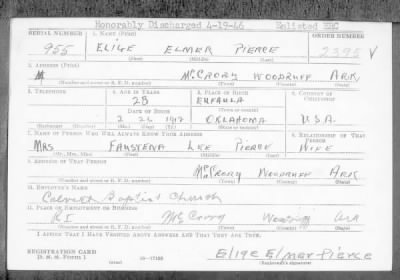 Honorably Discharged 4-19-46 Enlisted ERC
SERIAL NUMBER 1. NAME (Print) ORDER NUMBER
955 ELIGE ELMER PIERCE 2395 V
(First) (Middle) (Last)
2. ADDRESS (Print)
McCRORY WOODRUFF ARK
(Number and street or R. F. D. number) (Town) (County) (State)
3. TELEPHONE 4. AGE IN YEARS 5. PLACE OF BIRTH 6. COUNTRY OF CITIZENSHIP
28 EUFAULA
DATE OF BIRTH (Town or county)
2 26 1912 OKLAHOMA U.S.A.
(Exchange) (Number) (Mo.) (Day) (Yr.) (State or country)
7. NAME OF PERSON WHO WILL ALWAYS KNOW YOUR ADDRESS 8. RELATIONSHIP OF THAT PERSON
MRS FAUSTENA LEE PIERCE WIFE
(Mr., Mrs., Miss) (First) (Middle) (Last)
9. ADDRESS OF THAT PERSON
McCRORY WOODRUFF ARK
(Number and street or R. F. D. number) (Town) (County) (State)
10. EMPLOYER'S NAME
Baptist Church
11. PLACE OF EMPLOYMENT OR BUSINESS
McCrory
(Number and street or R. F. D. number) (Town) (County) (State)
I AFFIRM THAT I HAVE VERIFIED ABOVE ANSWERS AND THAT THEY ARE TRUE.
REGISTRATION CARD
D. S. S. Form 1 16-17105 Elige Elmer Pierce
(Registrant's signature)